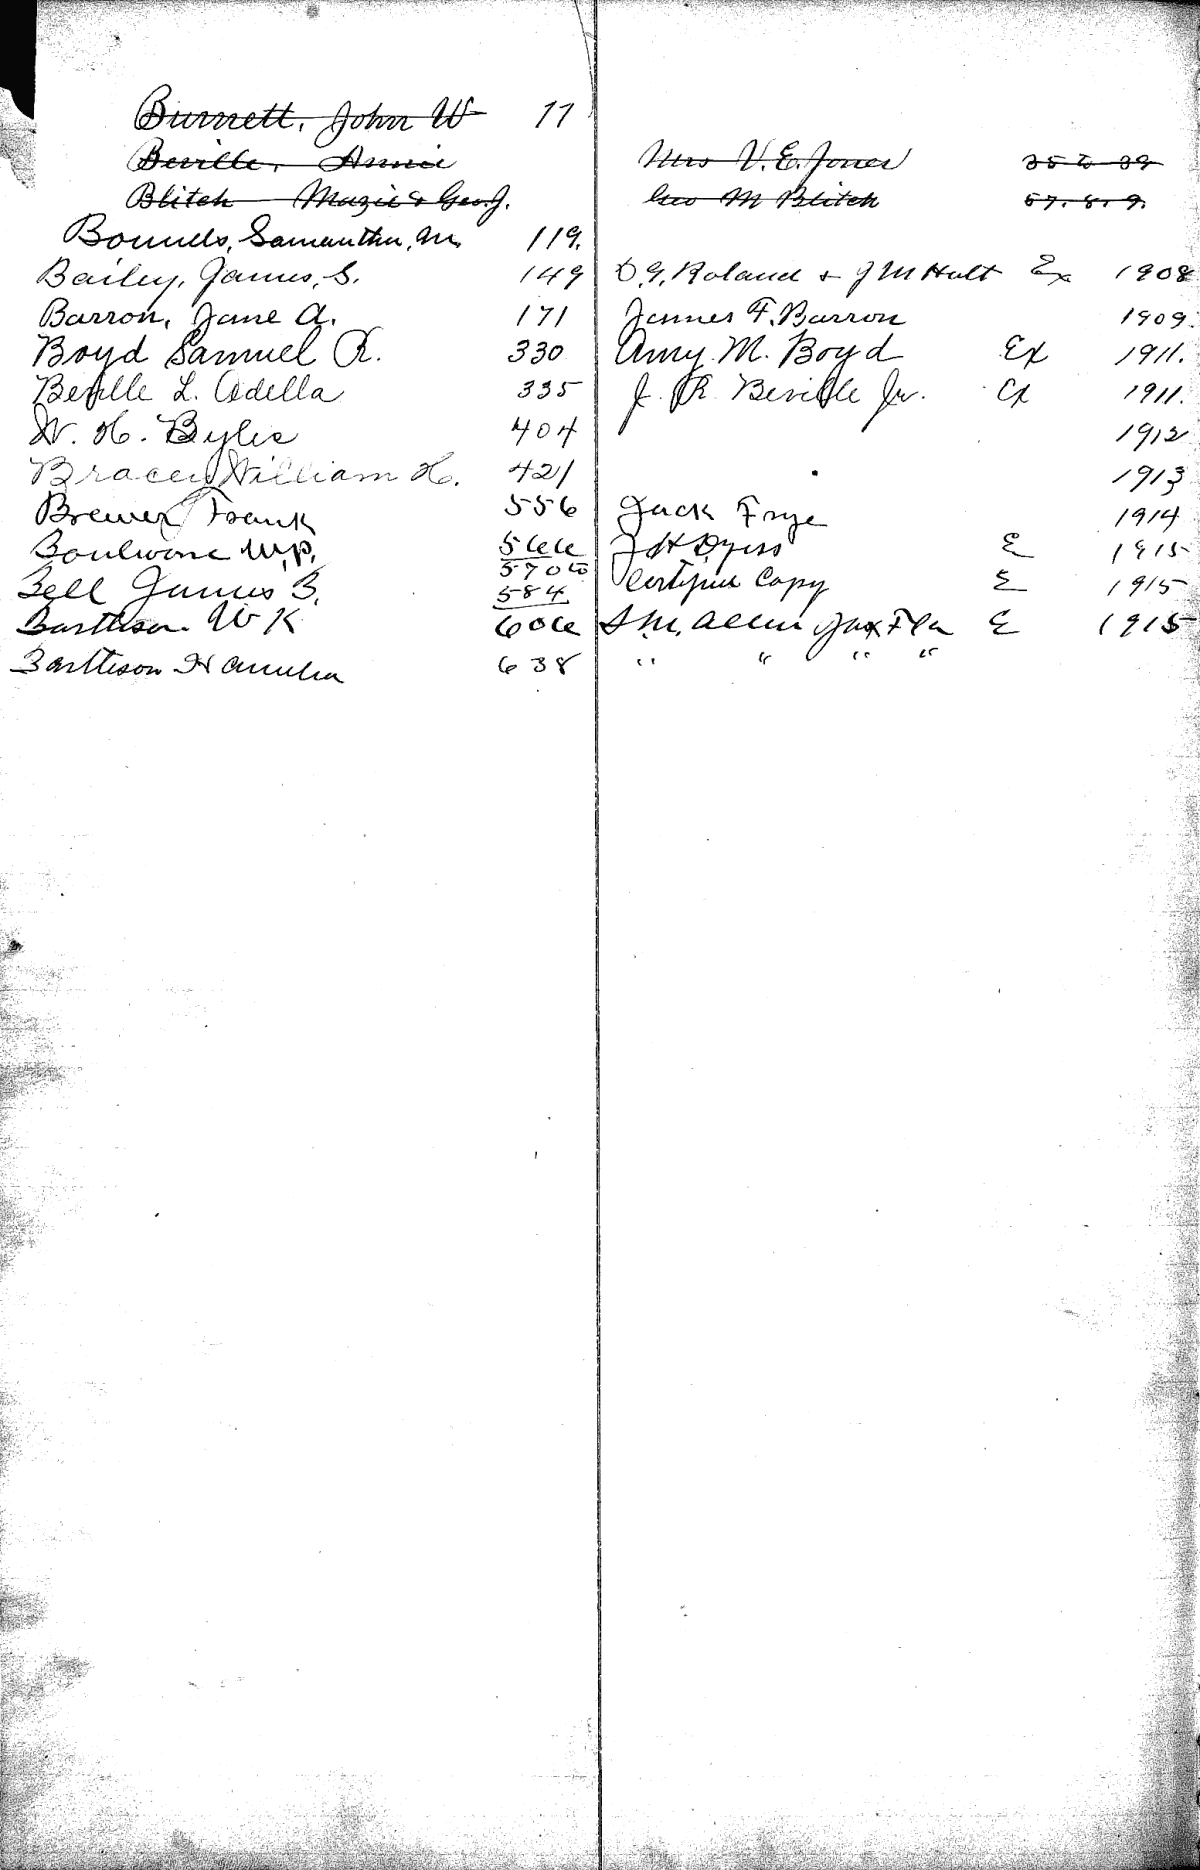 Burnett, John W 17
Beville, Annie Mrs V. E. Jones
Blitch Mazie & Geo. J. Geo M Blitch 57. 8. 9.
Bounds, Samantha, M. 119.
Bailey, James, S. 149 D. G. Roland & J M Hult Ex 1908
Barron, Jane A. 171 James F. Barron 1909.
Boyd Samuel R. 330 Amy M. Boyd Ex 1911.
Beville L. Adella 335 J. R. Beville Jr. Ex 1911.
W. H. Byles 404 1912
Bracey William H. 421 1913
Brewer Frank 556 Jack Frye 1914
Boulware W.P. 566 J H E 1915
570
Bell James B. 584 Certified Copy E 1915
Barttison W K 606 S. M. Allen Jax Fla E 1915
Barttison H Amelia 638 " " " "